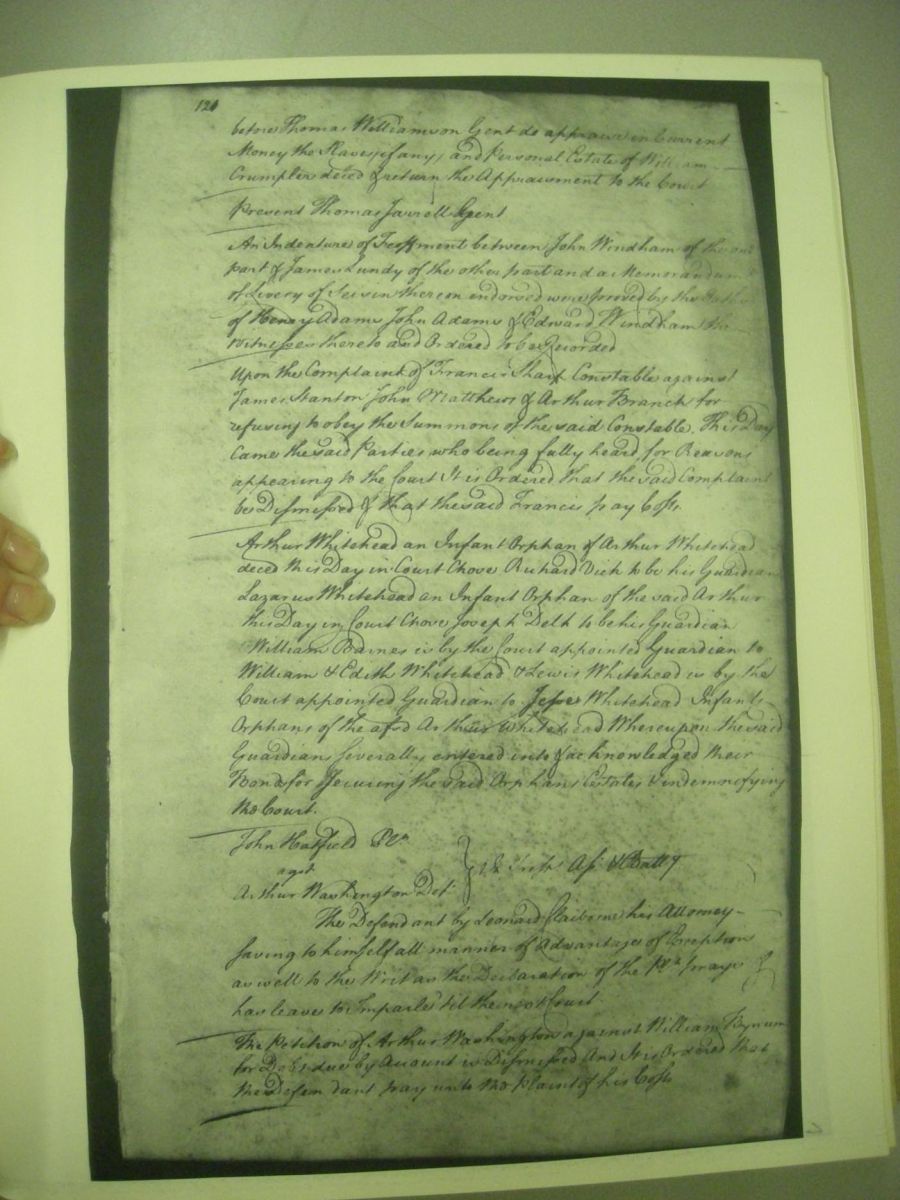 120
before Thomas Williamson Gent do appraise in Current
Money the Slaves, if any, and Personal Estate of William
Crumpler deced & return the Appraisment to the Court
Present Thomas Jarrell Gent
An Indenture of Feoffment between John Windham of the one
part & James Lundy of the other part and a Memorandum
of Livery of Seisin thereon endorsed were proved by the Oaths
of Henry Adams John Adams & Edward Windham the
Witnesses thereto and Ordered to be Recorded
Upon the Complaint of Francis Sharp Constable against
James Stanton John Matthews & Arthur Branch for
refusing to obey the Summons of the said Constable. This Day
Came the said Parties who being fully heard, for Reasons
appearing to the Court It is Ordered that the said Complaint
be Dismissed & that the said Francis pay Costs
Arthur Whitehead an Infant Orphan of Arthur Whitehead
deced this Day in Court Chose Richard Vick to be his Guardian
Lazarus Whitehead an Infant Orphan of the said Arthur
this Day in Court Chose Joseph Delk to be his Guardian
William Barnes is by the Court appointed Guardian to
William & Edith Whitehead & Lewis Whitehead is by the
Court appointed Guardian to Jesse Whitehead Infants
Orphans of the afsd Arthur Whitehead Whereupon the said
Guardians severally entered into & acknowledged their
Bonds for Securing the said Orphans Estates & indemnifying
the Court.
John Hatfield
agst
Arthur Washington Def.
Tresps Ass & Batty
The Defendant by Leonard Claiborne his Attorney
saving to himself all manner of Advantages of Exception
as well to the Writ as the Declaration of the Plt prays &
has leave to Imparle til the next Court
The Petition of Arthur Washington against William Bynum
for Debt due by Account is Dismissed And It is Ordered that
the Defendant pay unto the Plaint. his Costs